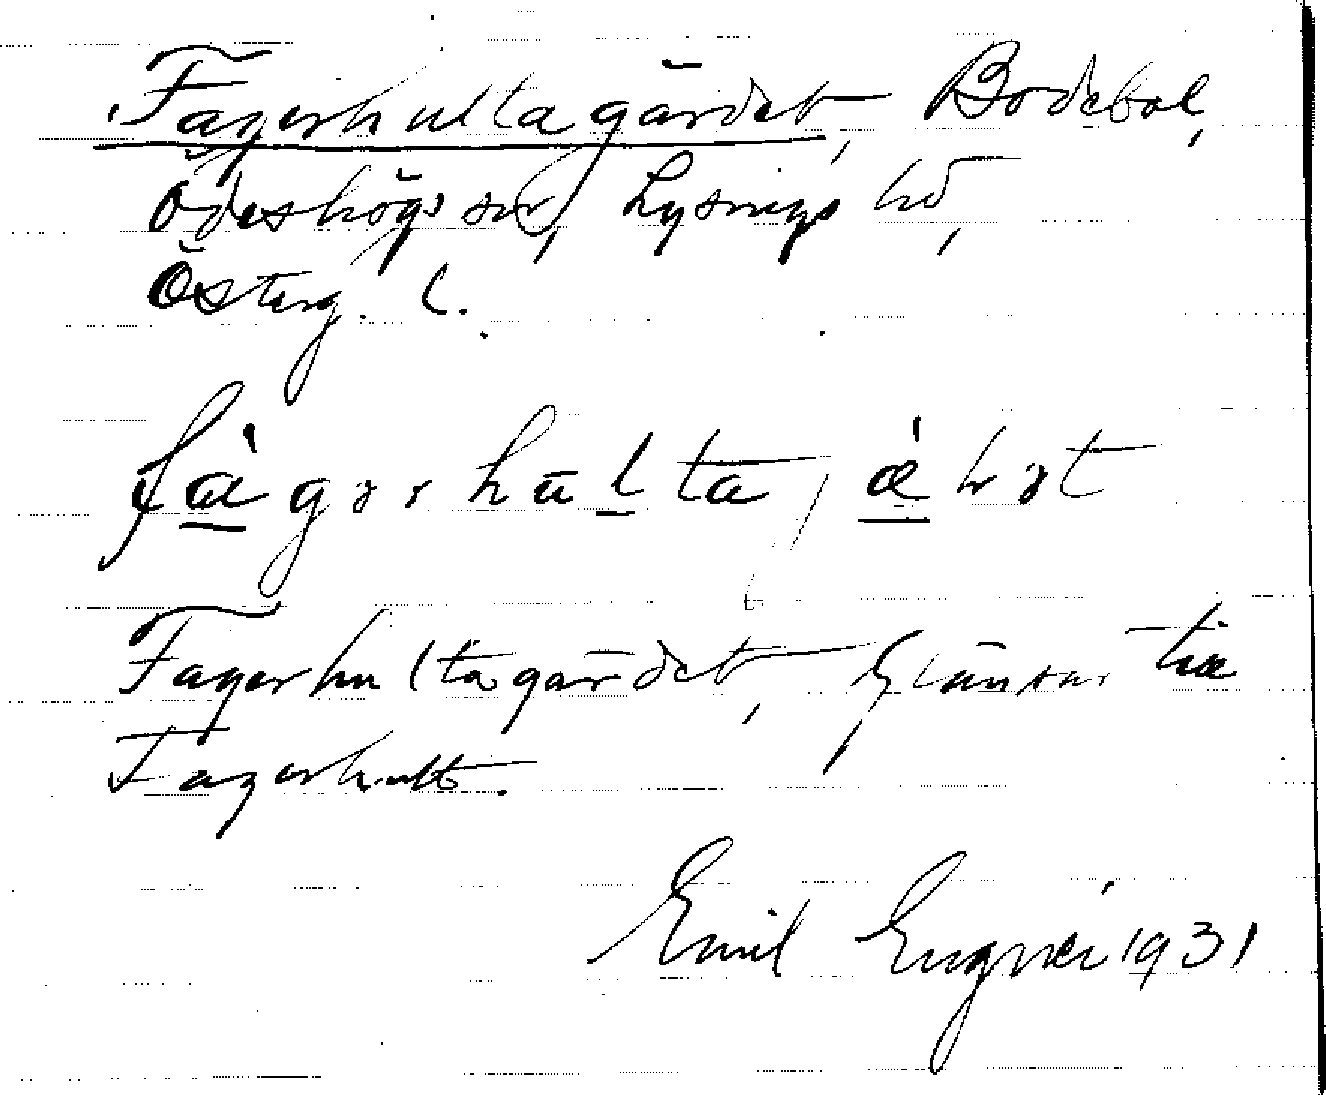 Fagerhultagärdet, Bodebol,
Ödeshögs sn, Lysings hd,
Österg. l.
Fagerhultagärdet, gränsar till
Fagerhult.
Emil Engnér 1931